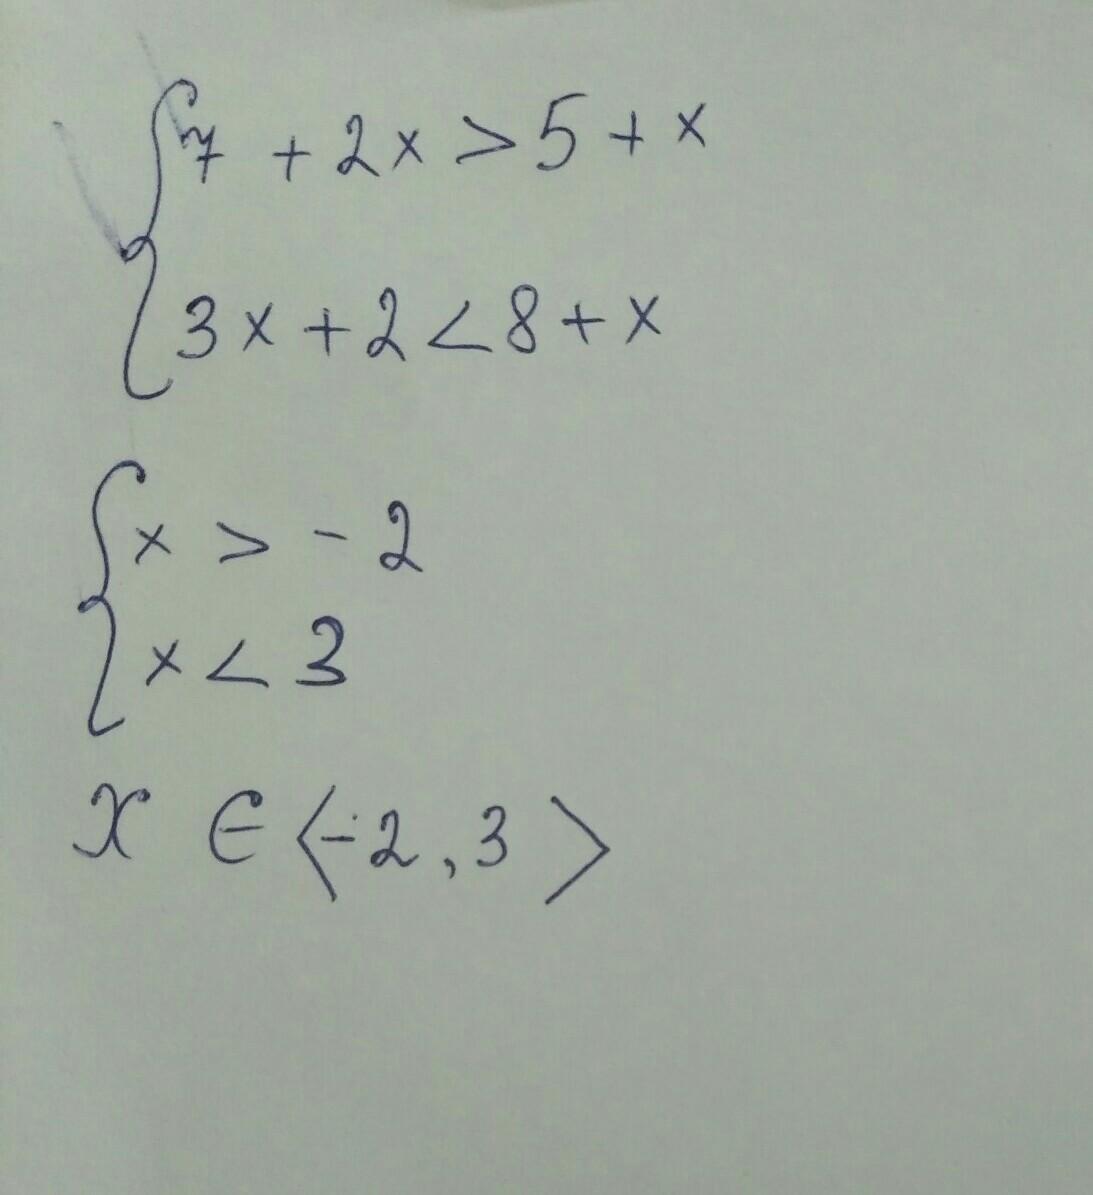 7 + 2x > 5 + x
3x + 2 < 8 + x
x > - 2
x < 3
x ∈ ⟨-2, 3⟩